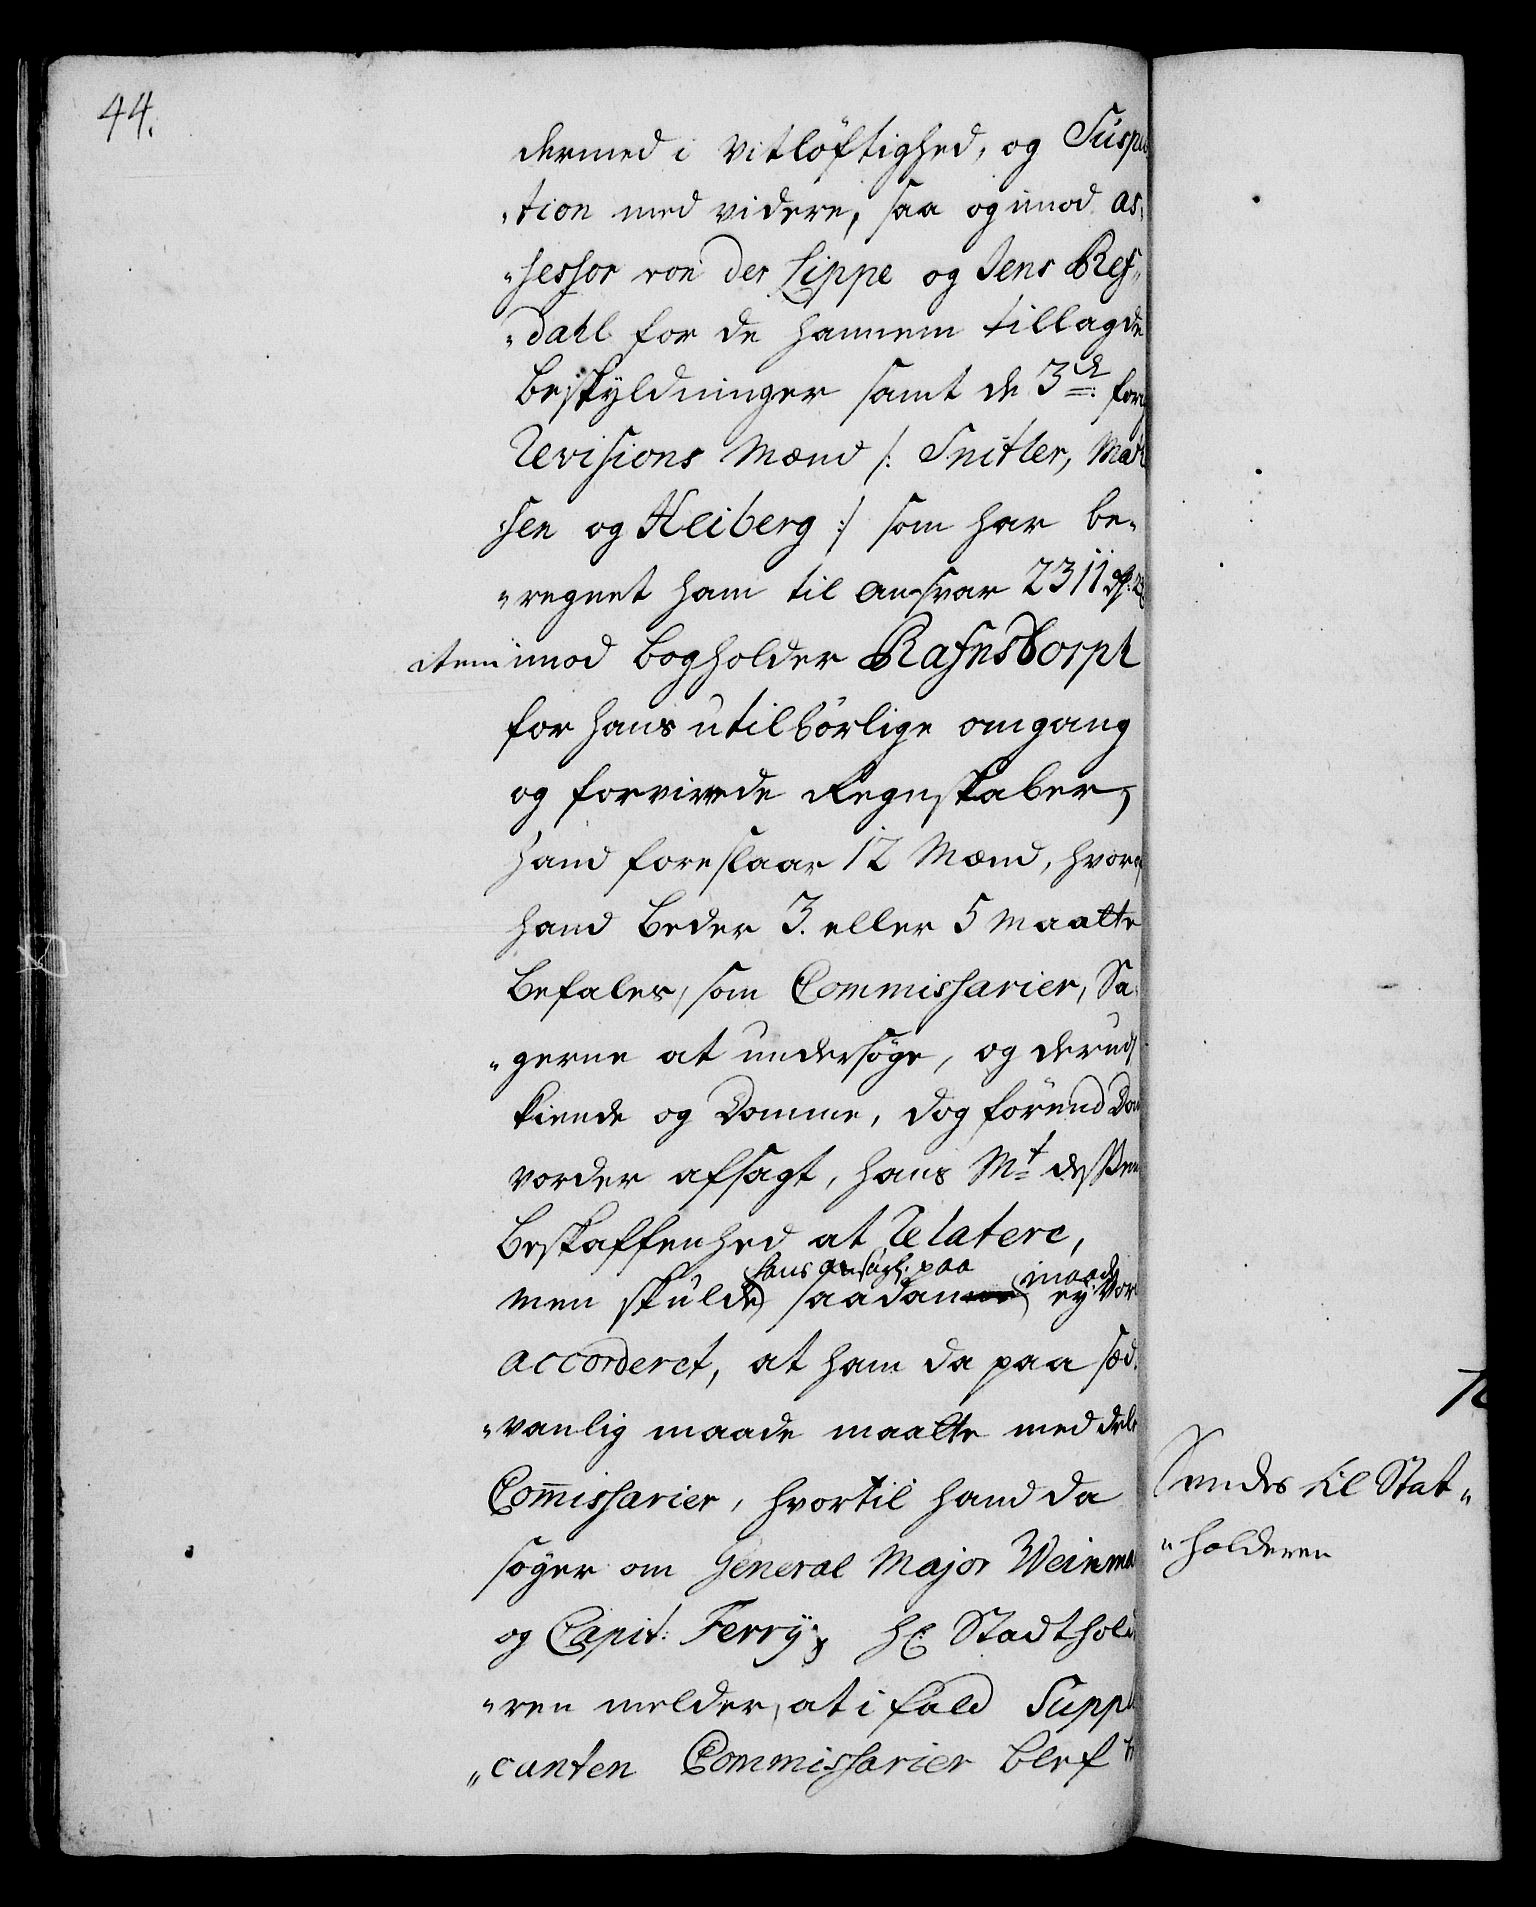 44.
dermed i Vitløftighed, og Suspe
„tion med videre, saa og imod as„
„sessor von der Lippe og Jens Ref„
„dahl for de hannem tillagde
beskyldninger samt de 3de: forr
Revisions Mænd /: Snitler, Mat
sen og Heiberg :/ som har be„
„regnet ham til ansvar 2311
item imod bogholder Rafnstorph
for hans utilbørlige omgang
og forvirrede Regnskaber,
hand foreslaar 12 Mænd, hvor
hand beder 3. eller 5 maatte
befales, som Commissarier, Sa„
„gerne at undersøge, og derudj
kiende og Domme, dog førend Dom
vorder afsagt, hans Mt: dessen
beskaffenhed at Relatere,
hans ansøgn: paa maade
men skulde saadan ey vor
accorderet, at ham da paa sæd„
„vanlig maade maatte meddele
Commissarier, hvortil hand da
søger om General Major Weinma
og Capit: Ferry; Hr: Stadthold
„ren melder, at i fald Suppli
„canten Commissarier blef
Sendes til Stat„
„holderen